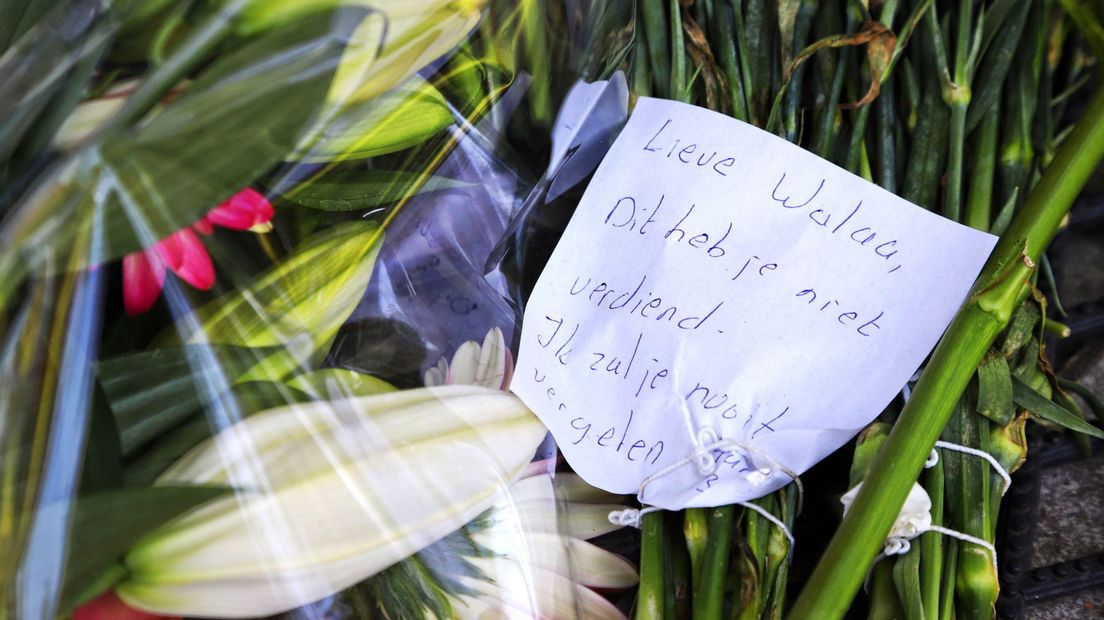 Lieve Walaa,
Dit heb je niet
verdiend.
Ik zul je nooit
vergeten